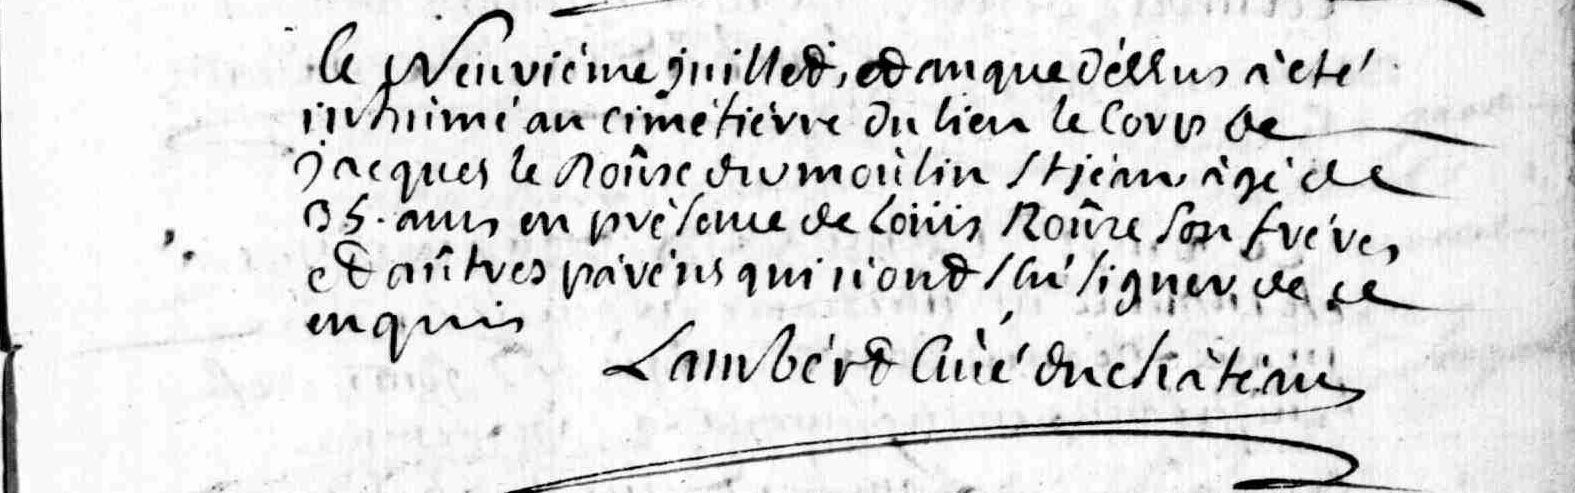 le Neuviéme juillet, et an que déssus à été
inhumé au cimétiérre du lieu le Corps de
jacques le Roûre du moùlin St jéan âgé de
35. ans en présence de Loüis Roûre son fréres
et aûtres paréns qui n'ont sçû signer de ce
enquis
Lambért Curé duchâtéau